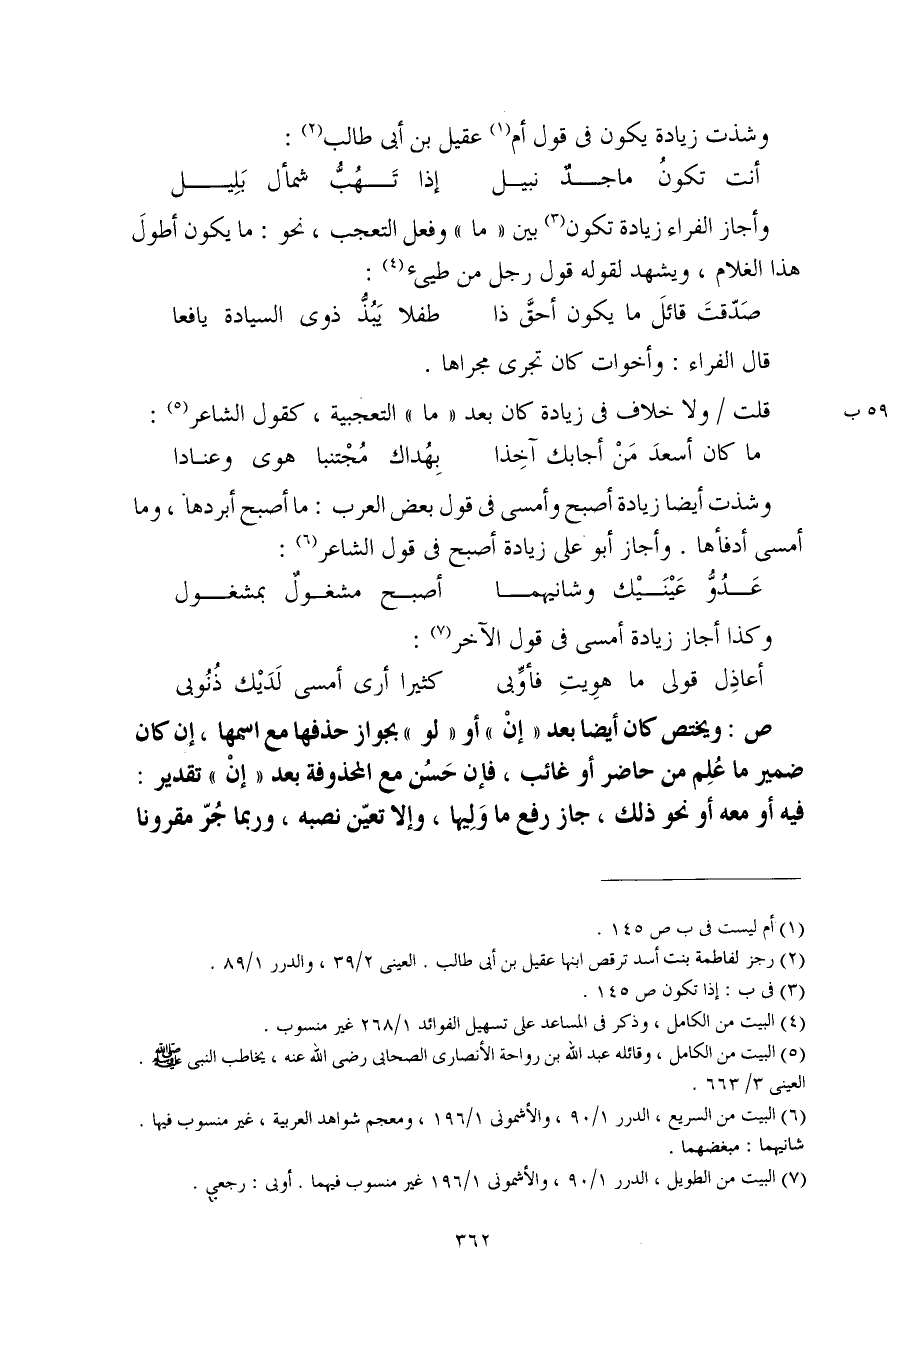 وشذت زيادة يكون فى قول أم(١) عقيل بن أبى طالب(٢) :
أنت تكونُ ماجــدٌ نبيـل إذا تَــهُبُّ شمأل بَلِيــــل
وأجاز الفراء زيادة تكون(٣) بين « ما » وفعل التعجب ، نحو : ما يكون أطولَ
هذا الغلام ، ويشهد لقوله قول رجل من طيىء(٤) :
صَدّقتَ قائلَ ما يكون أحقَّ ذا طفلا يَبُذُّ ذوى السيادة يافعا
قال الفراء : وأخوات كان تجرى مجراها .
قلت / ولا خلاف فى زيادة كان بعد « ما » التعجبية ، كقول الشاعر(٥) : ٥٩ ب
ما كان أسعدَ مَنْ أجابك آخِذا بِهُداك مُجْتنبا هوى وعنـادا
وشذت أيضا زيادة أصبح وأمسى فى قول بعض العرب : ما أصبح أبردها ، وما
أمسى أدفأها . وأجاز أبو على زيادة أصبح فى قول الشاعر(٦) :
عَــدُوُّ عَيْنَــيْك وشانيهمــا أصبــح مشغــولٌ بمشغــول
وكذا أجاز زيادة أمسى فى قول الآخر(٧) :
أعاذِل قولى ما هوِيتِ فأوِّبى كثيرا أرى أمسى لَدَيْك ذُنُوبى
ص : ويختص كان أيضا بعد « إنْ » أو « لو » بجواز حذفها مع اسمها ، إن كان
ضمير ما عُلِم من حاضر أو غائب ، فإن حَسُن مع المحذوفة بعد « إنْ » تقدير :
فيه أو معه أو نحو ذلك ، جاز رفع ما وَلِيها ، وإلا تعيّن نصبه ، وربما جُرّ مقرونا
(١) أم ليست فى ب ص ١٤٥ .
(٢) رجز لفاطمة بنت أسد ترقص ابنها عقيل بن أبى طالب . العينى ٣٩/٢ ، والدرر ٨٩/١ .
(٣) فى ب : إذا تكون ص ١٤٥ .
(٤) البيت من الكامل ، وذكر فى المساعد على تسهيل الفوائد ٢٦٨/١ غير منسوب .
(٥) البيت من الكامل ، وقائله عبد الله بن رواحة الأنصارى الصحابى رضى الله عنه ، يخاطب النبى ﷺ .
العينى ٣/ ٦٦٣ .
(٦) البيت من السريع ، الدرر ٩٠/١ ، والأشمونى ١٩٦/١ ، ومعجم شواهد العربية ، غير منسوب فيها .
شانيهما : مبغضهما .
(٧) البيت من الطويل ، الدرر ٩٠/١ ، والأشمونى ١٩٦/١ غير منسوب فيهما . أوبى : رجعي .
٣٦٢